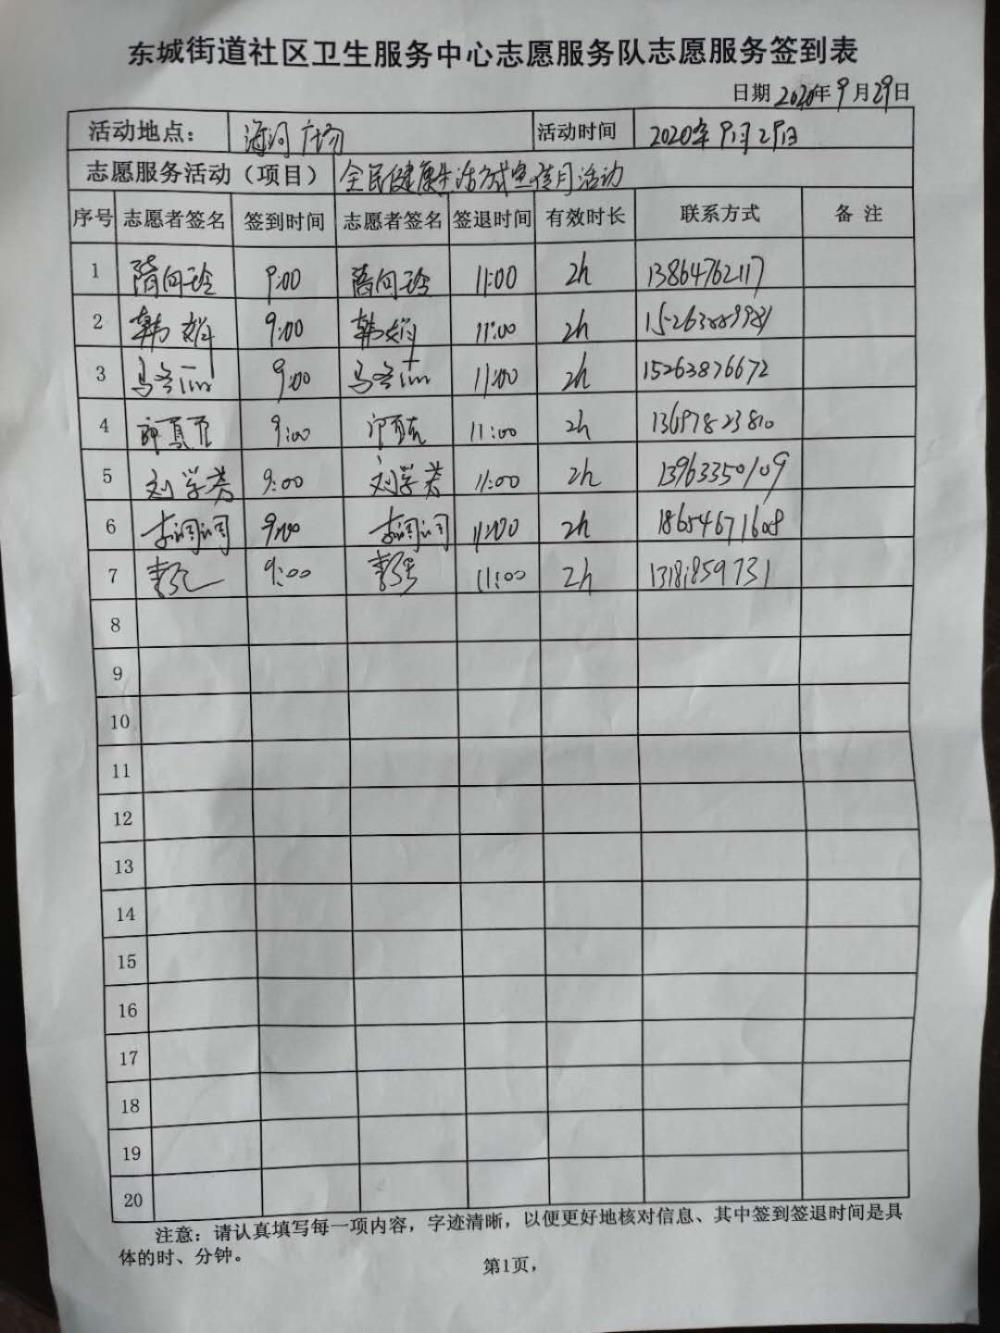 东城街道社区卫生服务中心志愿服务队志愿服务签到表
日期 2020年9月29日
活动地点： 海河广场 活动时间 2020年9月29日
志愿服务活动（项目） 全民健康生活方式宣传月活动
序号 志愿者签名 签到时间 志愿者签名 签退时间 有效时长 联系方式 备 注
1 隋向玲 9:00 隋向玲 11:00 2h 13864762117
2 韩娟 9:00 韩娟 11:00 2h
3 9:00 11:00 2h 15263876672
4 9:00 11:00 2h 13697823810
5 刘学芳 9:00 刘学芳 11:00 2h 13963350109
6 李润润 9:00 李润润 11:00 2h 18654671608
7 9:00 11:00 2h 13181859731
8
9
10
11
12
13
14
15
16
17
18
19
20
注意：请认真填写每一项内容，字迹清晰，以便更好地核对信息、其中签到签退时间是具
体的时、分钟。
第1页，